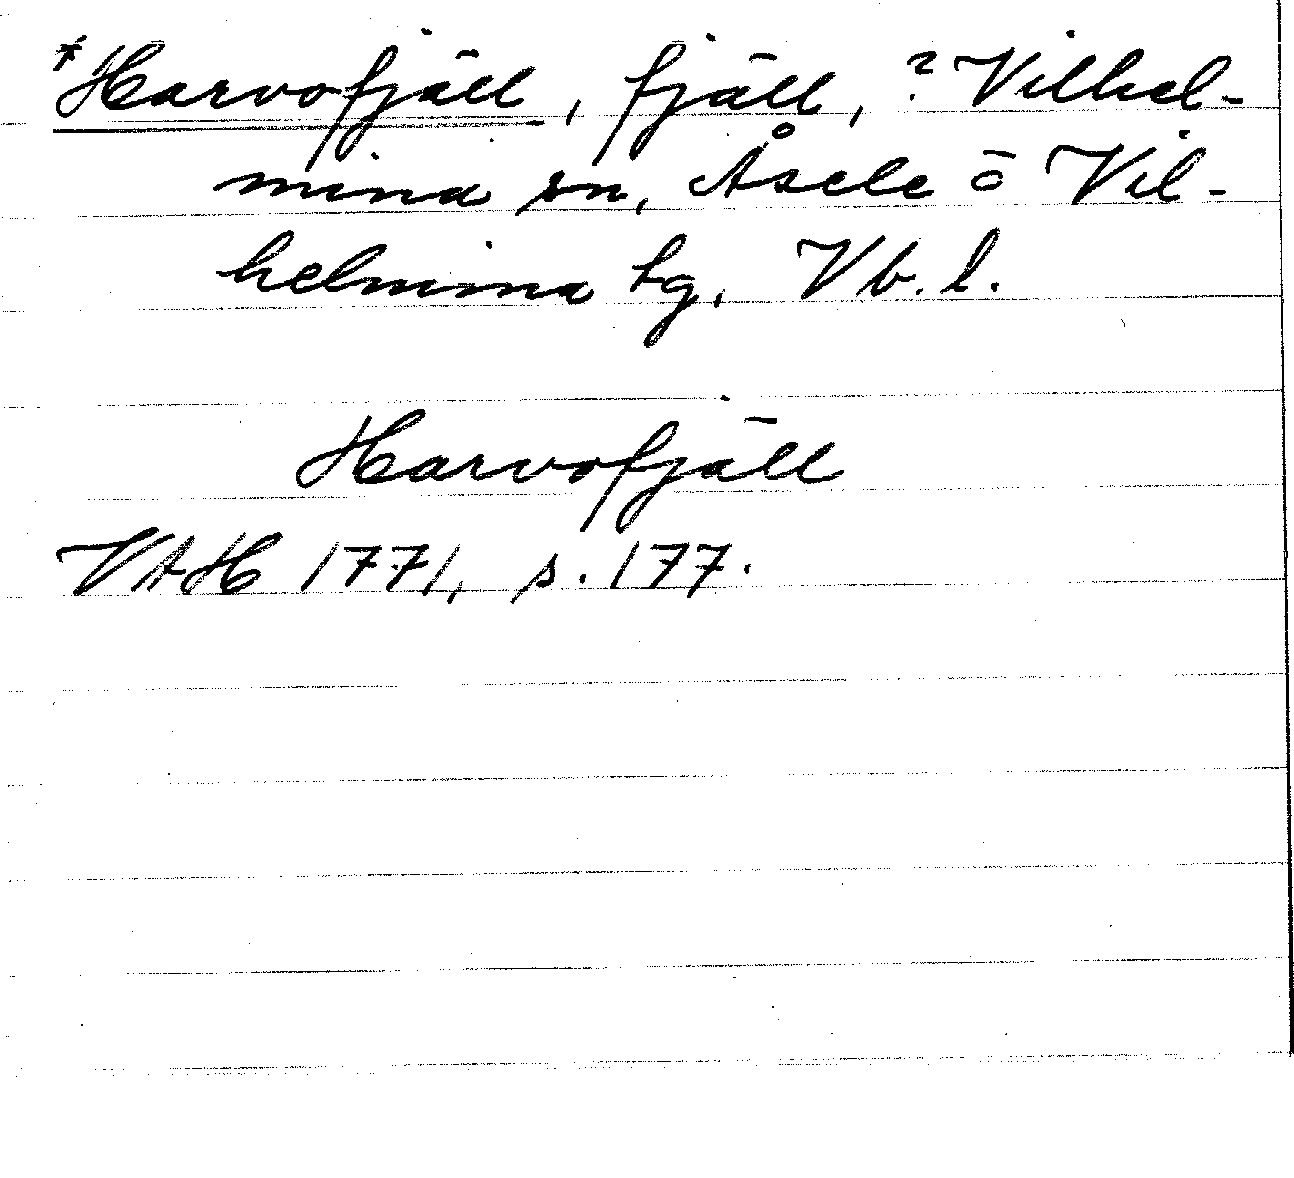 *Harvofjäll, fjäll, ? Vilhel-
mina sn, Åsele o Vil-
helmina tg, Vb. l.
Harvofjäll
VAH 1771, s. 177.